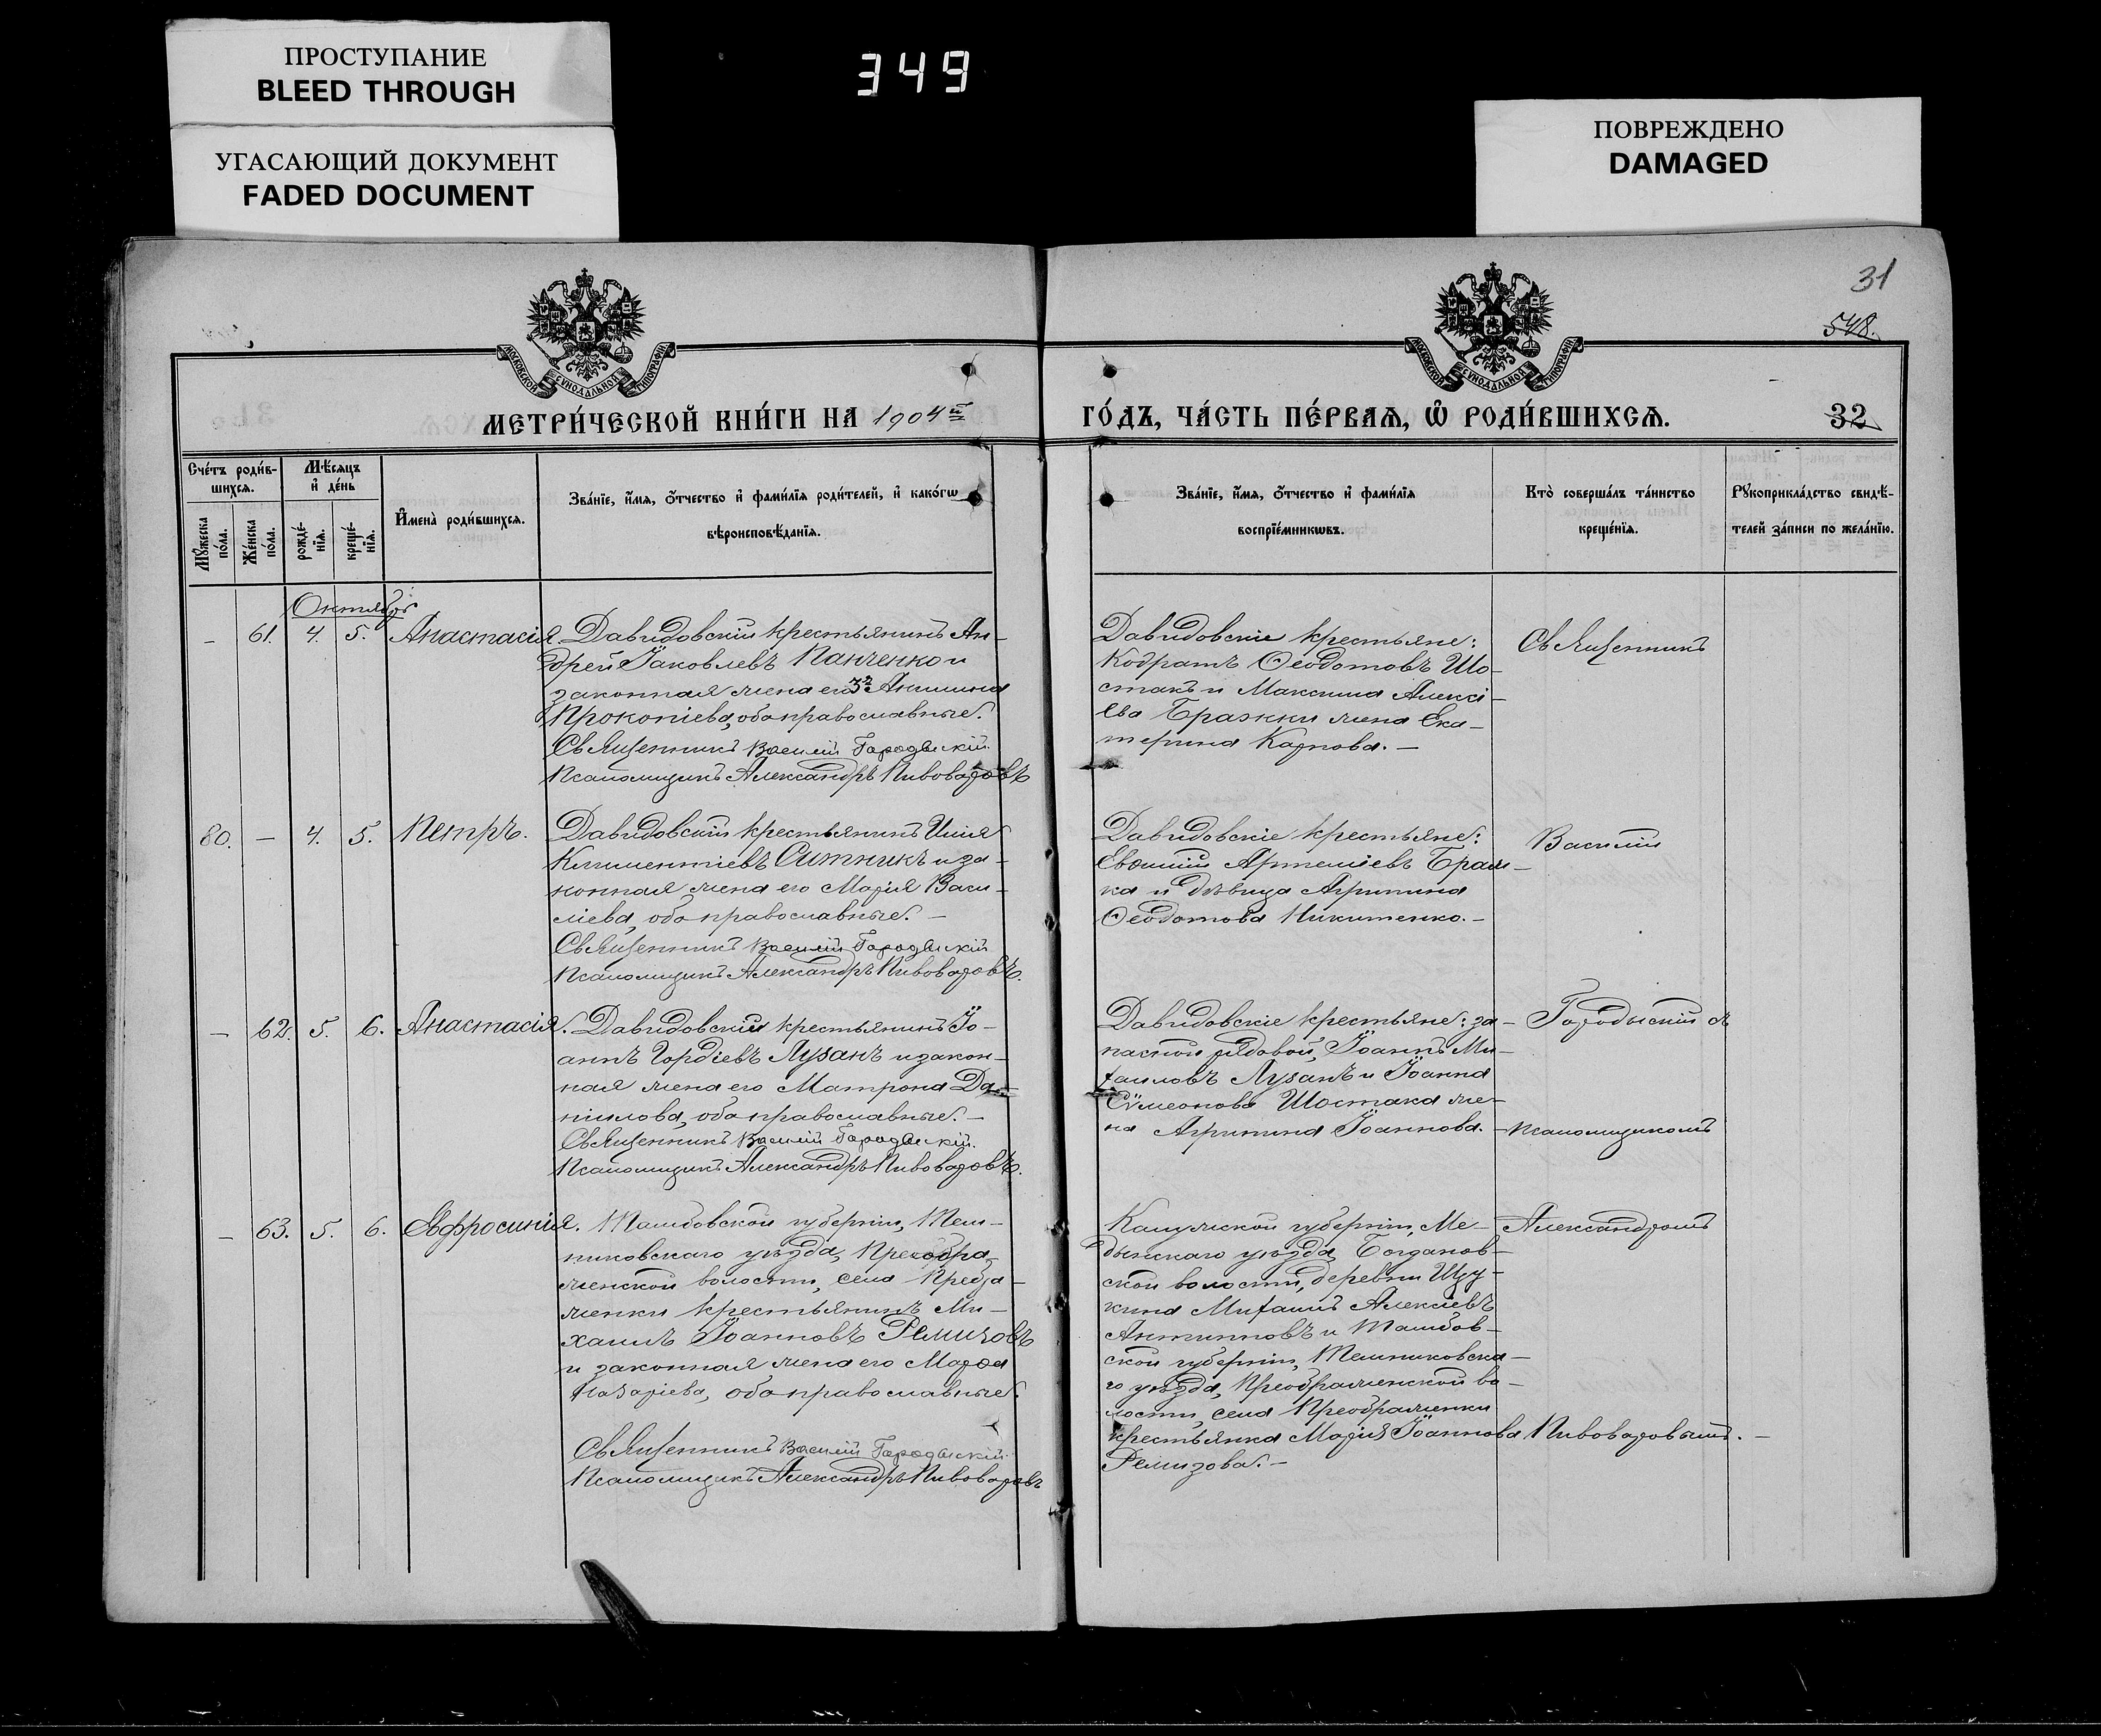 ПРОСТУПАНИЕ
BLEED THROUGH
УГАСАЮЩИЙ ДОКУМЕНТ
FADED DOCUMENT
349
ПОВРЕЖДЕНО
DAMAGED
31
548.
МОСКОВСКОЙ СѴНОДАЛЬНОЙ ТИПОГРАФІИ
МОСКОВСКОЙ СѴНОДАЛЬНОЙ ТИПОГРАФІИ
МЕТРИ́ЧЕСКОЙ КНИ́ГИ НА 1904й
ГО́ДЪ, ЧА́СТЬ ПЕ́РВАѦ, Ѡ҆ РОДИ́ВШИХСѦ.
32
Сче́тъ роди́в-
шихсѧ.
Мꙋ́жеска по́ла.
Же́нска по́ла.
Мѣ́сѧцъ и҆ де́нь
рожде́-нїѧ.
креще́-нїѧ.
И҆мена̀ роди́вшихсѧ.
Зва́нїе, и҆́мѧ, ѻ҆́тчество и҆ фами́лїѧ роди́телей, и҆ како́гѡ
вѣроисповѣ́данїѧ.
Зва́нїе, и҆́мѧ, ѻ҆́тчество и҆ фами́лїѧ
воспрїе́мникѡвъ.
Кто̀ соверша́лъ та́инство
креще́нїѧ.
Рꙋкоприкла́дство свидѣ́-
телей за́писи по жела́нїю.
Октябрь
– 61. 4. 5. Анастасія.
Давидовскій крестьянинъ Ан-
дрей Іаковлевъ Панченко и
законная жена его Акилина
Прокопіева, оба православные.
Священникъ Василій Городыскій.
Псаломщикъ Александръ Пивоваровъ
Давидовскіе крестьяне:
Кодратъ Ѳеодотовъ Шо-
стакъ и Максима Алексі-
ева Бражки жена Ека-
терина Карпова. –
Священникъ
80. – 4. 5. Петръ.
Давидовскій крестьянинъ Илія
Климентіевъ Ситникъ и за-
конная жена его Марія Васи-
ліева, оба православные. –
Священникъ Василій Городыскій
Псаломщикъ Александръ Пивоваровъ.
Давидовскіе крестьяне:
Евѳимій Артеміевъ Браж-
ка и дѣвица Агрипина
Ѳеодотова Никитенко. –
Василій
– 62. 5. 6. Анастасія.
Давидовскій крестьянинъ Іо-
аннъ Гордіевъ Лузанъ и закон-
ная жена его Матрона Да-
ніилова, оба православные. –
Священникъ Василій Городыскій.
Псаломщикъ Александръ Пивоваровъ.
Давидовскіе крестьяне: за-
пасной рядовой, Іоаннъ Ми-
хаиловъ Лузанъ и Іоанна
Сѵмеонова Шостака же-
на Агрипина Іоаннова. –
Городыскій съ
псаломщикомъ
– 63. 5. 6. Евфросинія.
Тамбовской губерніи, Тем-
никовскаго уѣзда, Преобра-
женской волости, села Преобра-
женки крестьянинъ Ми-
хаилъ Іоанновъ Ремизовъ
и законная жена его Марѳа
Назаріева, оба православные.
Священникъ Василій Городыскій
Псаломщикъ Александръ Пивоваровъ
Калужской губерніи, Ме-
дынскаго уѣзда, Богданов-
ской волости, деревни Щу-
кина Михаилъ Алексіевъ
Антиповъ и Тамбов-
ской губерніи, Темниковска-
го уѣзда, Преображенской во-
лости, села Преображенки
крестьянка Марія Іоаннова
Ремизова. –
Александромъ
Пивоваровымъ. –